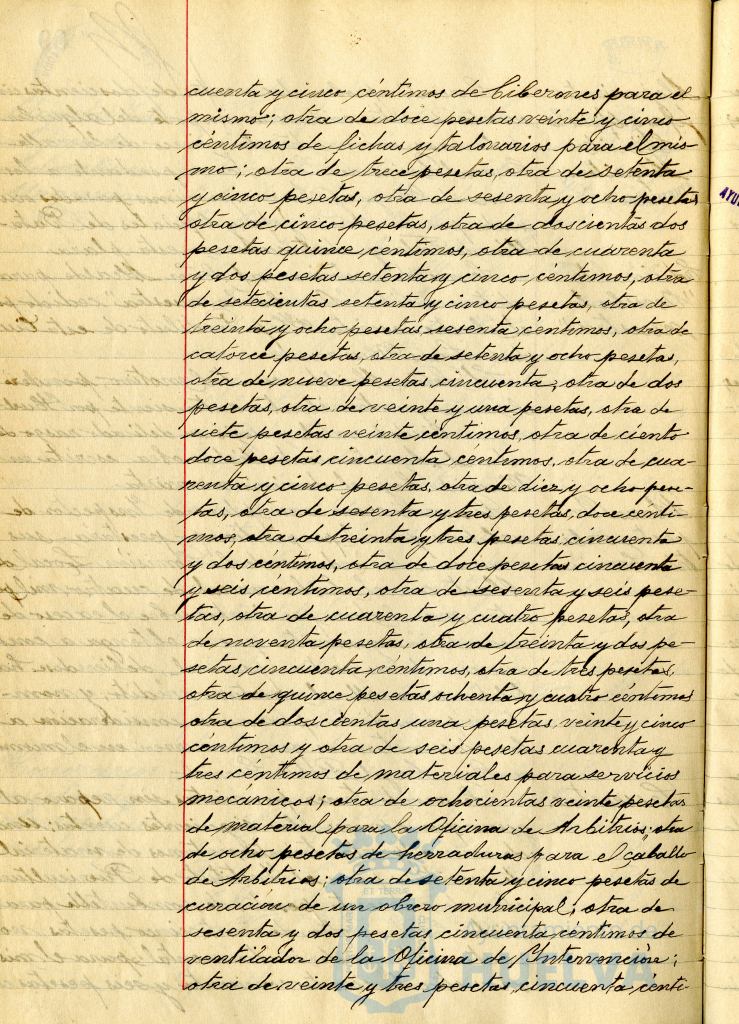 cuenta y cinco céntimos de Biberones para el
mismo; otra de doce pesetas veinte y cinco
céntimos de fichas y talonarios para el mis-
mo; otra de trece pesetas, otra de setenta
y cinco pesetas, otra de sesenta y ocho pesetas
otra de cinco pesetas, otra de doscientas dos
pesetas quince céntimos, otra de cuarenta
y dos pesetas setenta y cinco centimos, otra
de setecientas setenta y cinco pesetas, otra de
treinta y ocho pesetas sesenta céntimos, otra de
catorce pesetas, otra de setenta y ocho pesetas,
otra de nueve pesetas cincuenta, otra de dos
pesetas, otra de veinte y una pesetas, otra de
siete pesetas veinte céntimos, otra de ciento
doce pesetas cincuenta centimos, otra de cua-
renta y cinco pesetas, otra de diez y ocho pese-
tas, otra de sesenta y tres pesetas, doce cénti-
mos, otra de treinta y tres pesetas cincuenta
y dos céntimos, otra de doce pesetas cincuenta
y seis céntimos, otra de sesenta y seis pese-
tas, otra de cuarenta y cuatro pesetas, otra
de noventa pesetas, otra de treinta y dos pe-
setas cincuenta céntimos, otra de tres pesetas,
otra de quince pesetas ochenta y cuatro centimos
otra de doscientas una pesetas veinte y cinco
céntimos y otra de seis pesetas cuarenta y
tres céntimos de materiales para servicios
mecánicos; otra de ochocientas veinte pesetas
de material para la Oficina de Arbitrios; otra
de ocho pesetas de herraduras para el caballo
de Arbitrios; otra de setenta y cinco pesetas de
curación de un obrero municipal; otra de
sesenta y dos pesetas cincuenta céntimos de
ventilador de la Oficina de Intervención;
otra de veinte y tres pesetas cincuenta cénti-
HUELVA
AYU